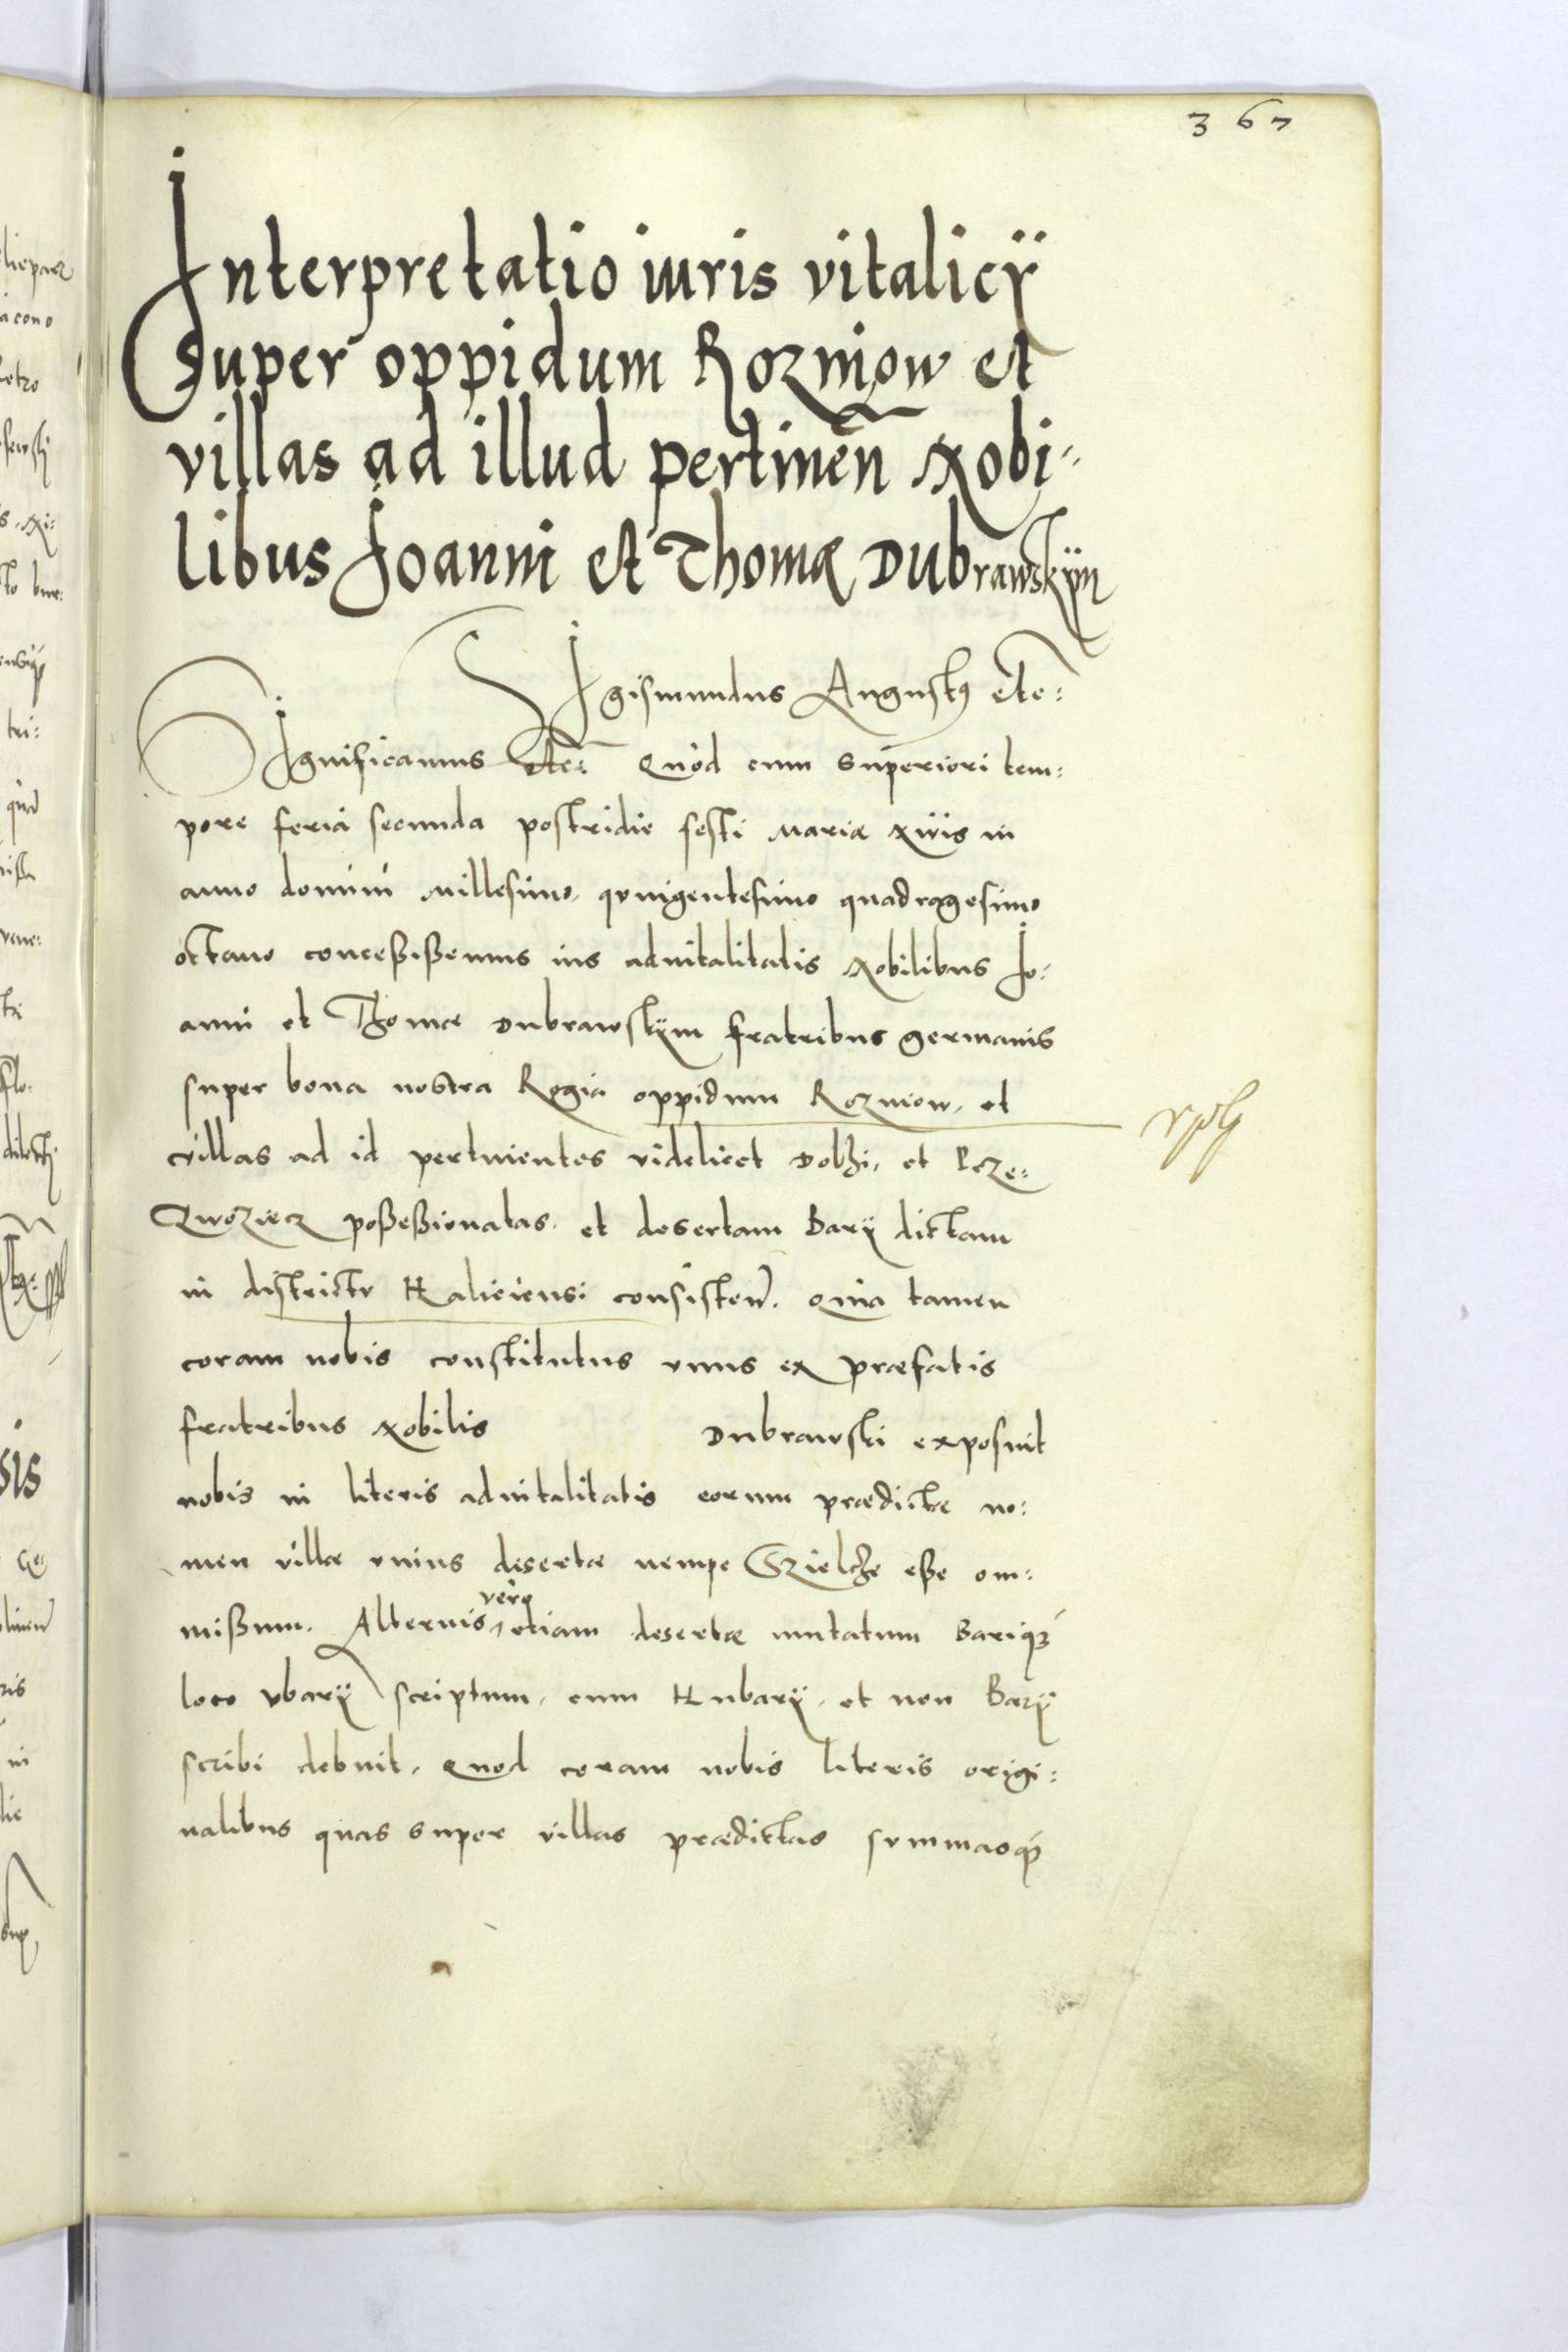 367
Interpretatio iuris vitalicÿ
super oppidum Rozniow et
villas ad illud pertinen̄ Nobi-
libus Joanni et Thomæ Dubrawskÿm
Sigismundus Augustus etc:
Significamus etc: Quòd cum superiori tem:
pore feria secunda postridie festi Mariæ Nivis in
anno domini Millesimo, quingentesimo quadragesimo
octavo conceßißemus ius advitalitatis Nobilibus Jo:
anni et Thomæ Dubrawskÿm fratribus germanis
super bona nostra Regia oppidum Rozniow, et
villas ad id pertinentes videlicet Dolhi, et Prze:
Qwoziecz poßeßionatas, et desertam Barÿ dictam
in districtu Haliciensi consisten̄. Quia tamen
coram nobis constitutus vnus ex præfatis
fratribus Nobilis Dubrawski exposuit
nobis in literis advitalitatis eorum prædictæ no:
men villæ vnius desertæ nempe Czielcze eße om:
mißum. Alterius vero etiam desertæ mutatum Bariqꝫ
loco vbarÿ scriptum, cum Hubarÿ, et non Barÿ
scribi debuit, Quod coram nobis literis origi:
nalibus quas super villas prædictas summasqꝫ